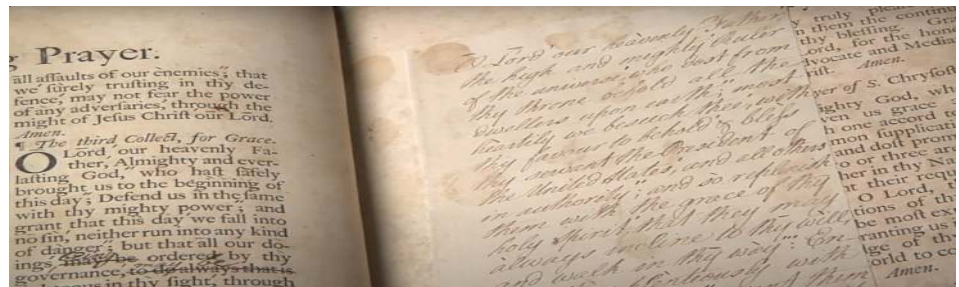 g Prayer.
all aſſaults of our enemies; that
we ſurely truſting in thy de-
fence, may not fear the power
of any adverſaries, through the
might of Jeſus Chriſt our Lord.
Amen.
¶ The third Collect, for Grace.
O Lord our heavenly Fa-
ther, Almighty and ever-
laſting God, who haſt ſafely
brought us to the beginning of
this day; Defend us in the ſame
with thy mighty power; and
grant that this day we fall into
no ſin, neither run into any kind
of danger; but that all our do-
ings, may be ordered by thy
governance, to do always that is
in thy ſight, through
O Lord our heavenly Father
the high and mighty Ruler
of the universe, who dost from
thy throne behold all the
dwellers upon earth; most
heartily we beseech thee with
thy favour to behold & bless
thy servant the President of
the United States, and all others
in authority; and so replenish
them with the grace of thy
holy Spirit, that they may
always incline to thy will,
and walk in thy way: En-
with
them
y truly pleaſe
n them the continu
thy bleſſing. Gra
ord, for the hono
dvocate and Media
riſt. Amen.
yer of S. Chryſoſt
ghty God, wh
ven us grace
h one accord to
mon ſupplicati
and doſt prom
o or three are
her in thy Na
t their requ
O Lord, t
tions of th
be moſt ex
ranting us
ge of th
orld to co
Amen.